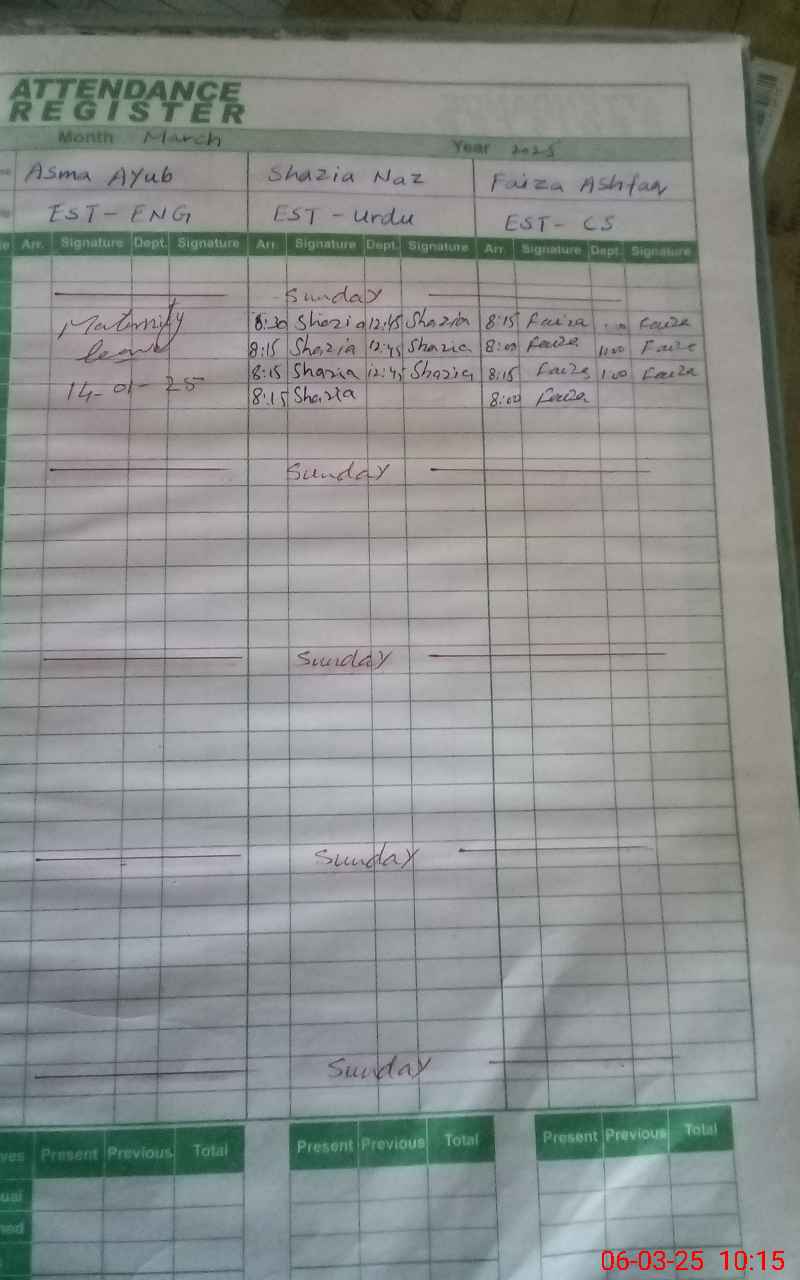 ATTENDANCE
REGISTER
Month March Year 2025
Asma Ayub Shazia Naz Faiza Ashfaq
EST-ENG EST-Urdu EST-CS
Arr. Signature Dept. Signature Arr. Signature Dept. Signature Arr. Signature Dept. Signature
Sunday
Maternity 8:30 Shazia 12:45 Shazia 8:15 Faiza Faiza
leave 8:15 Shazia 12:45 Shazia 8:00 Faiza 11:00 Faiza
8:15 Shazia 12:45 Shazia 8:15 Faiza 1:00 Faiza
14-01-25 8:15 Shazia 8:00 Faiza
Sunday
Sunday
Sunday
Sunday
Present Previous Total Present Previous Total Present Previous Total
06-03-25 10:15